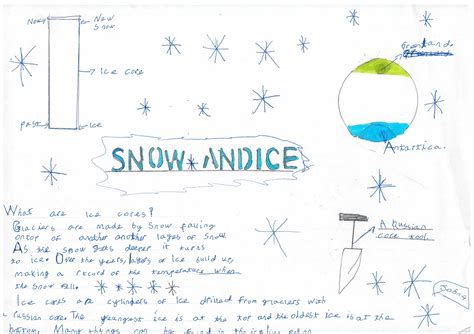 New
New
Snow
Ice core
Past
Ice
Greenland
Antartica.
SNOW ANDICE
A Russian
core tool.
What are Ice cores?
Glaciers are made by Snow falling
ontop of another another layes of Snow.
As the snow gets deeper it turns
to ice. Over the years, layers of Ice build up,
making a record of the temperature when
the Snow fell.
Ice cores are cylinders of Ice drilled from glaciers with
a russian core. The youngest ice is at the top and the oldest ice is at the
bottom. Many things can be found in the ice